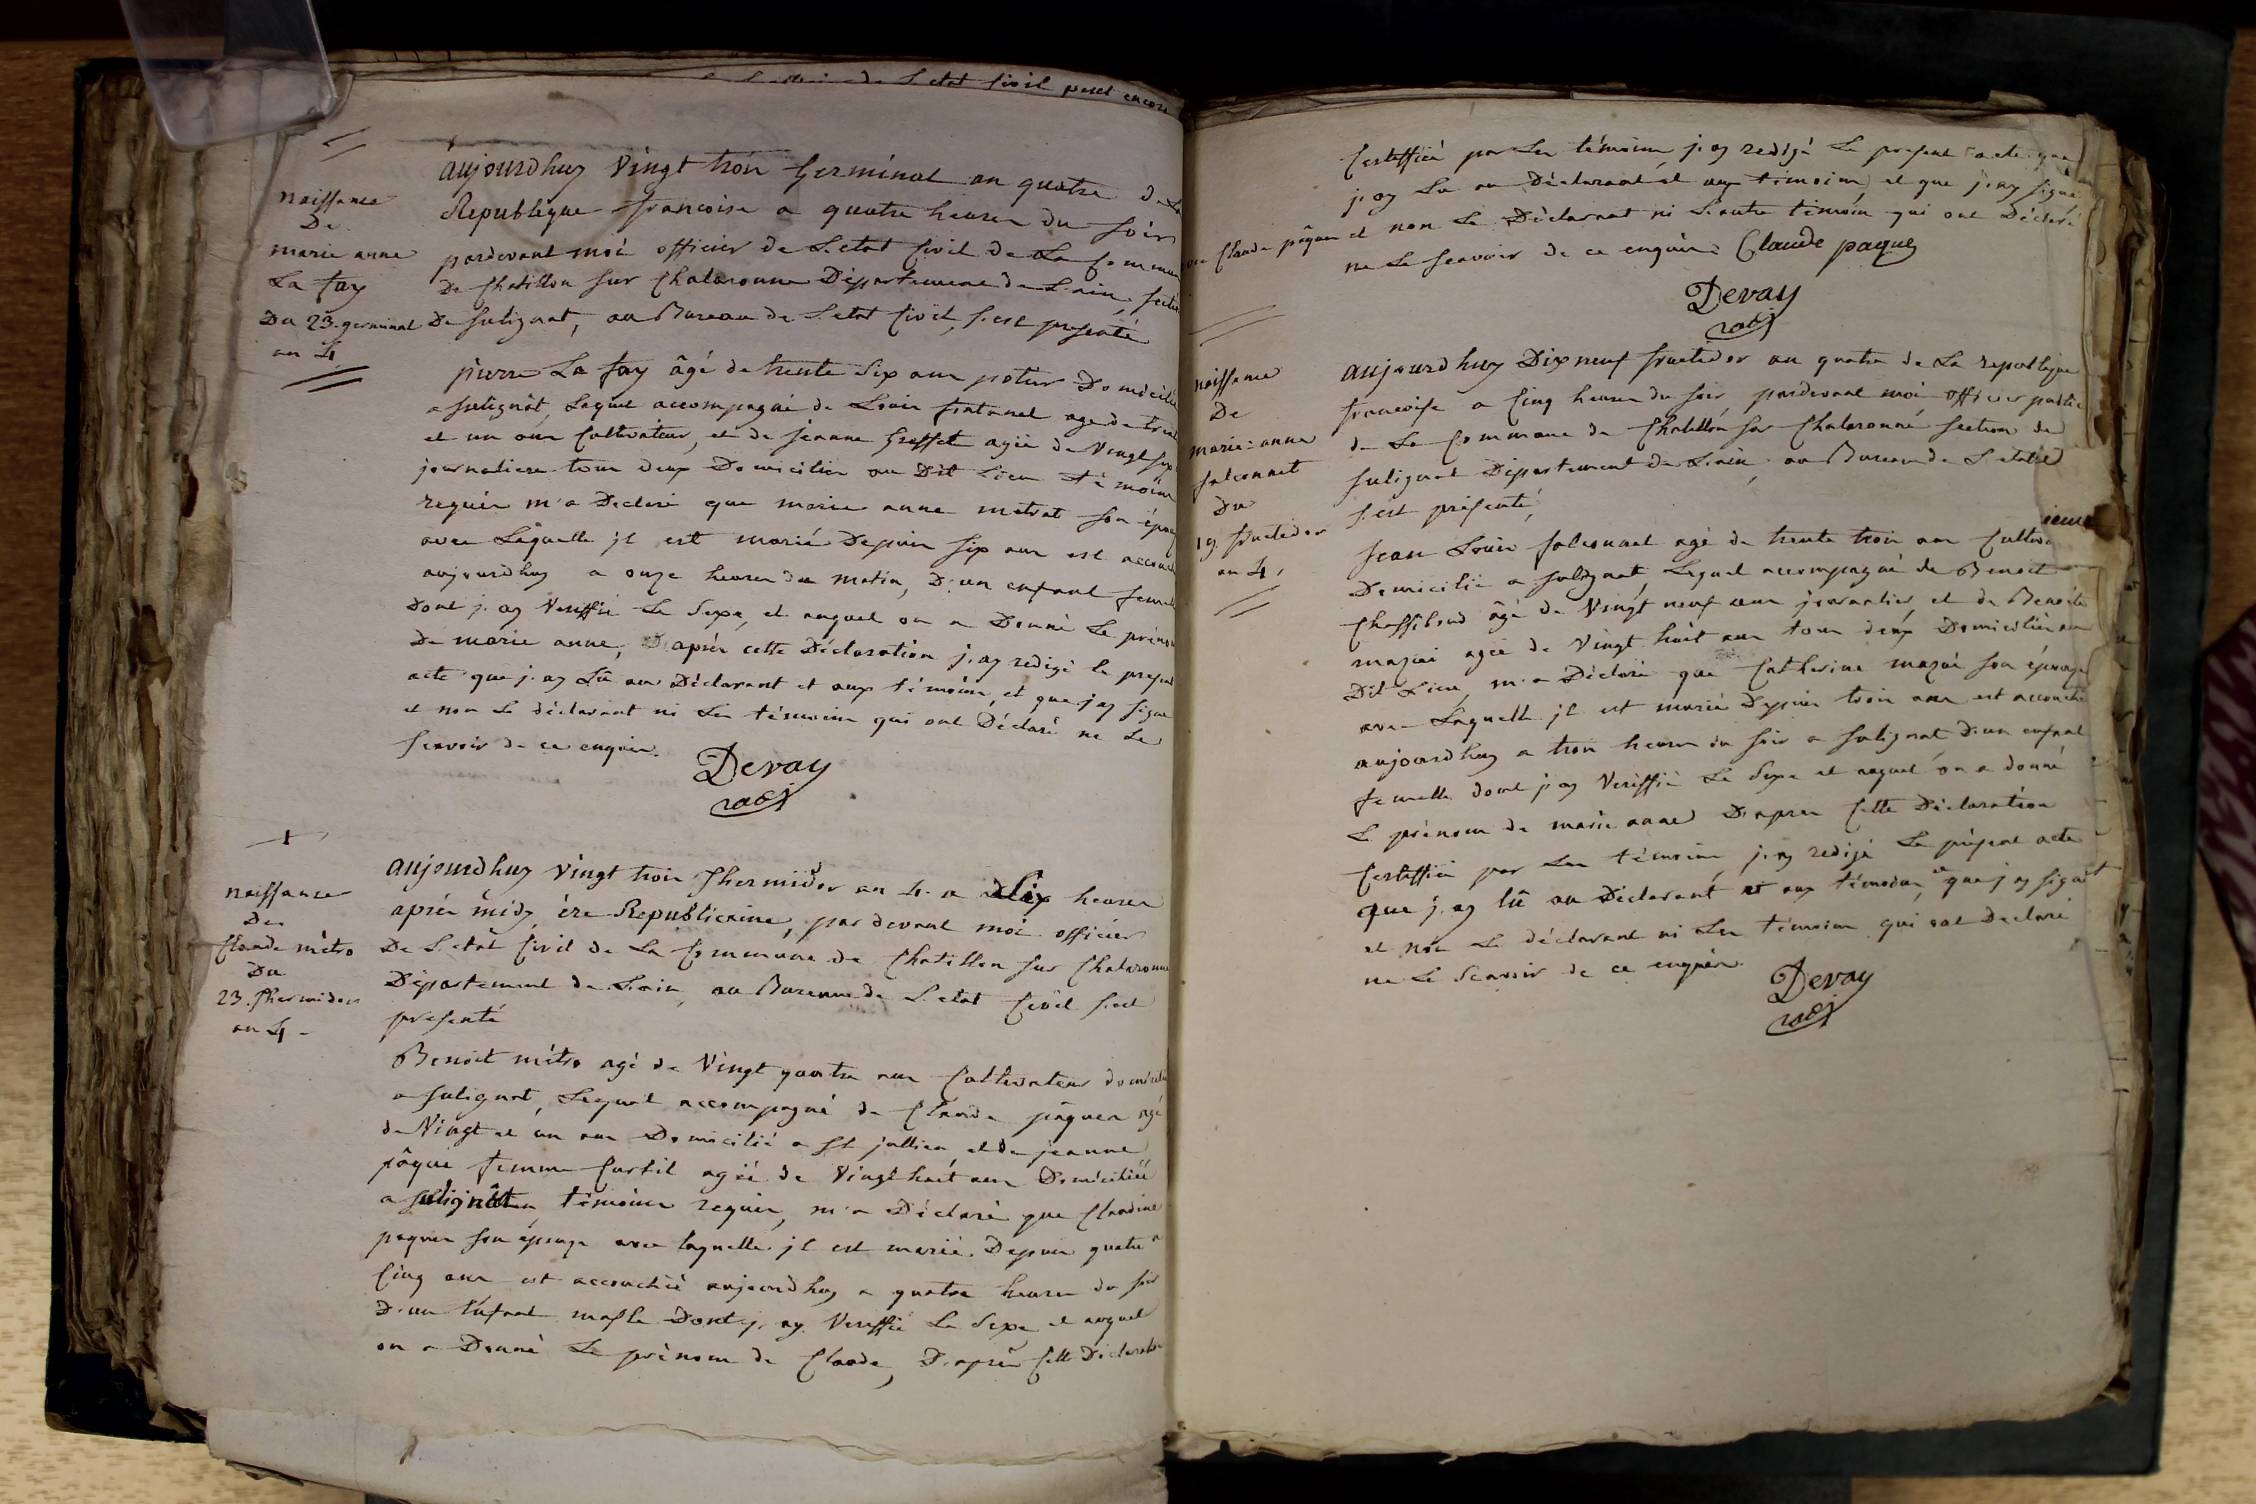 de L'etat Civil peut encore
naissance
De
marie anne
La fay
Du 23. germinal
an 4
aujourdhuy vingt troix Germinal an quatre de La
Republique francoise a quatre heures du soir
pardevant moi officier de L'etat Civil de La Commune
De Chatillon sur Chalaronne Département de L'ain, section
De sulignat, au Bureau de L'etat Civil, s'est presenté
pierre La fay âgé de trente six ans Domicilié
a sulignat, Lequel accompagné de Louis fontanel age de trente
et un ans Cultivateur, et de jeanne Greffet agée de Vingt six
journaliere tous deux Domiciliés au Dit Lieu témoins
requis m'a Declaré que marie anne metrat son épouse
avec Laquelle jl est marié Depuis six ans est accouchée
aujourdhuy a onze heures du matin, D'un enfant femelle
Dont j'ay Veriffié Le Sexe, et auquel on a Donné Le prénom
De marie anne, D'après cette Déclaration j'ay redigé le present
acte que j'ay Lû au Déclarant et aux témoins, et que j'ay signé
et non Le déclarant ni Les témoins qui ont Déclaré ne Le
Scavoir de ce enquis.
Devay
naissance
De
Claude mètro
Du
23. Thermidor
an 4
aujourdhuy vingt trois Thermidor an 4. a Six heures
après midy, ère Republicaine, par devant moi officier
De L'etat Civil de La Commune de Chatillon sur Chalaronne
Département de L'ain, au Bureau de L'etat Civil s'est
presenté
Benoit mètro agé de Vingt quatre ans Cultivateur domicilié
a sulignat, Lequel accompagné de Claude pâques agé
de Vingt et un ans Domicilié a St jullien, et de jeanne
pâque femme Curtil agée de Vingt huit ans Domiciliée
a sulignat témoins requis, m'a Déclaré que Claudine
paques son épouse avec laquelle jl est marié Depuis quatre a
Cinq ans est accouchée aujourdhuy a quatre heures du soir
D'un Enfant masle Dont j'ay Veriffié Le Sexe et auquel
on a Donné Le prénom de Claude, D'après Cette Déclaration
Certiffiée par Les témoins j'ay redigé Le present acte que
j'ay Lu au Déclarant et aux témoins et que j'ay signé
Claude pâques et non Le Déclarant ni L'autre témoin qui ont Déclaré
ne Le scavoir de ce enquis. Claude paques
Devay
naissance
De
marie-anne
falconnet
Du
19. fructidor
an 4
aujourdhuy Dix neuf fructidor an quatre de La republique
francoise a Cinq heures du soir pardevant moi officier public
de La Commune de Chatillon sur Chalaronne section de
sulignat Département de L'ain, au Bureau de L'etat
s'est présenté,
Jean Louis falconnet agé de trente trois ans
Domicilié a sulignat, Lequel accompagné de Benoit
âgé de Vingt neuf ans journalier, et de Benoite
mazui agée de Vingt huit ans tous deux Domiciliés au
Dit Lieu, m'a Déclaré que Catherine mazui son épouse
avec Laquelle jl est marié Depuis trois ans est accouchée
aujourdhuy a trois heures du soir a sulignat, D'un enfant
femelle dont j'ay Veriffié Le Sexe et auquel on a donné
Le prénom de marie anne D'après Cette Déclaration
Certiffiée par Les témoins, j'ay redigé Le présent acte
que j'ay lû au Déclarant et aux témoins, et que j'ay signé
et non Le déclarant ni Les témoins qui ont Declaré
ne Le Scavoir de ce enquis.
Devay